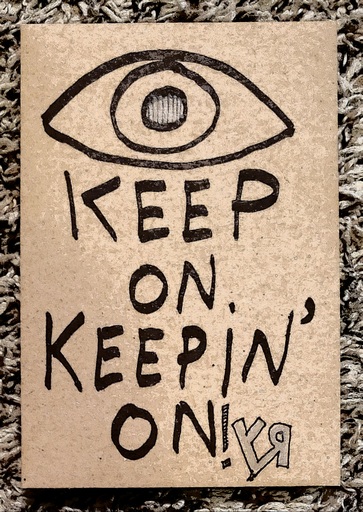 KEEP
ON.
KEEPIN'
ON!